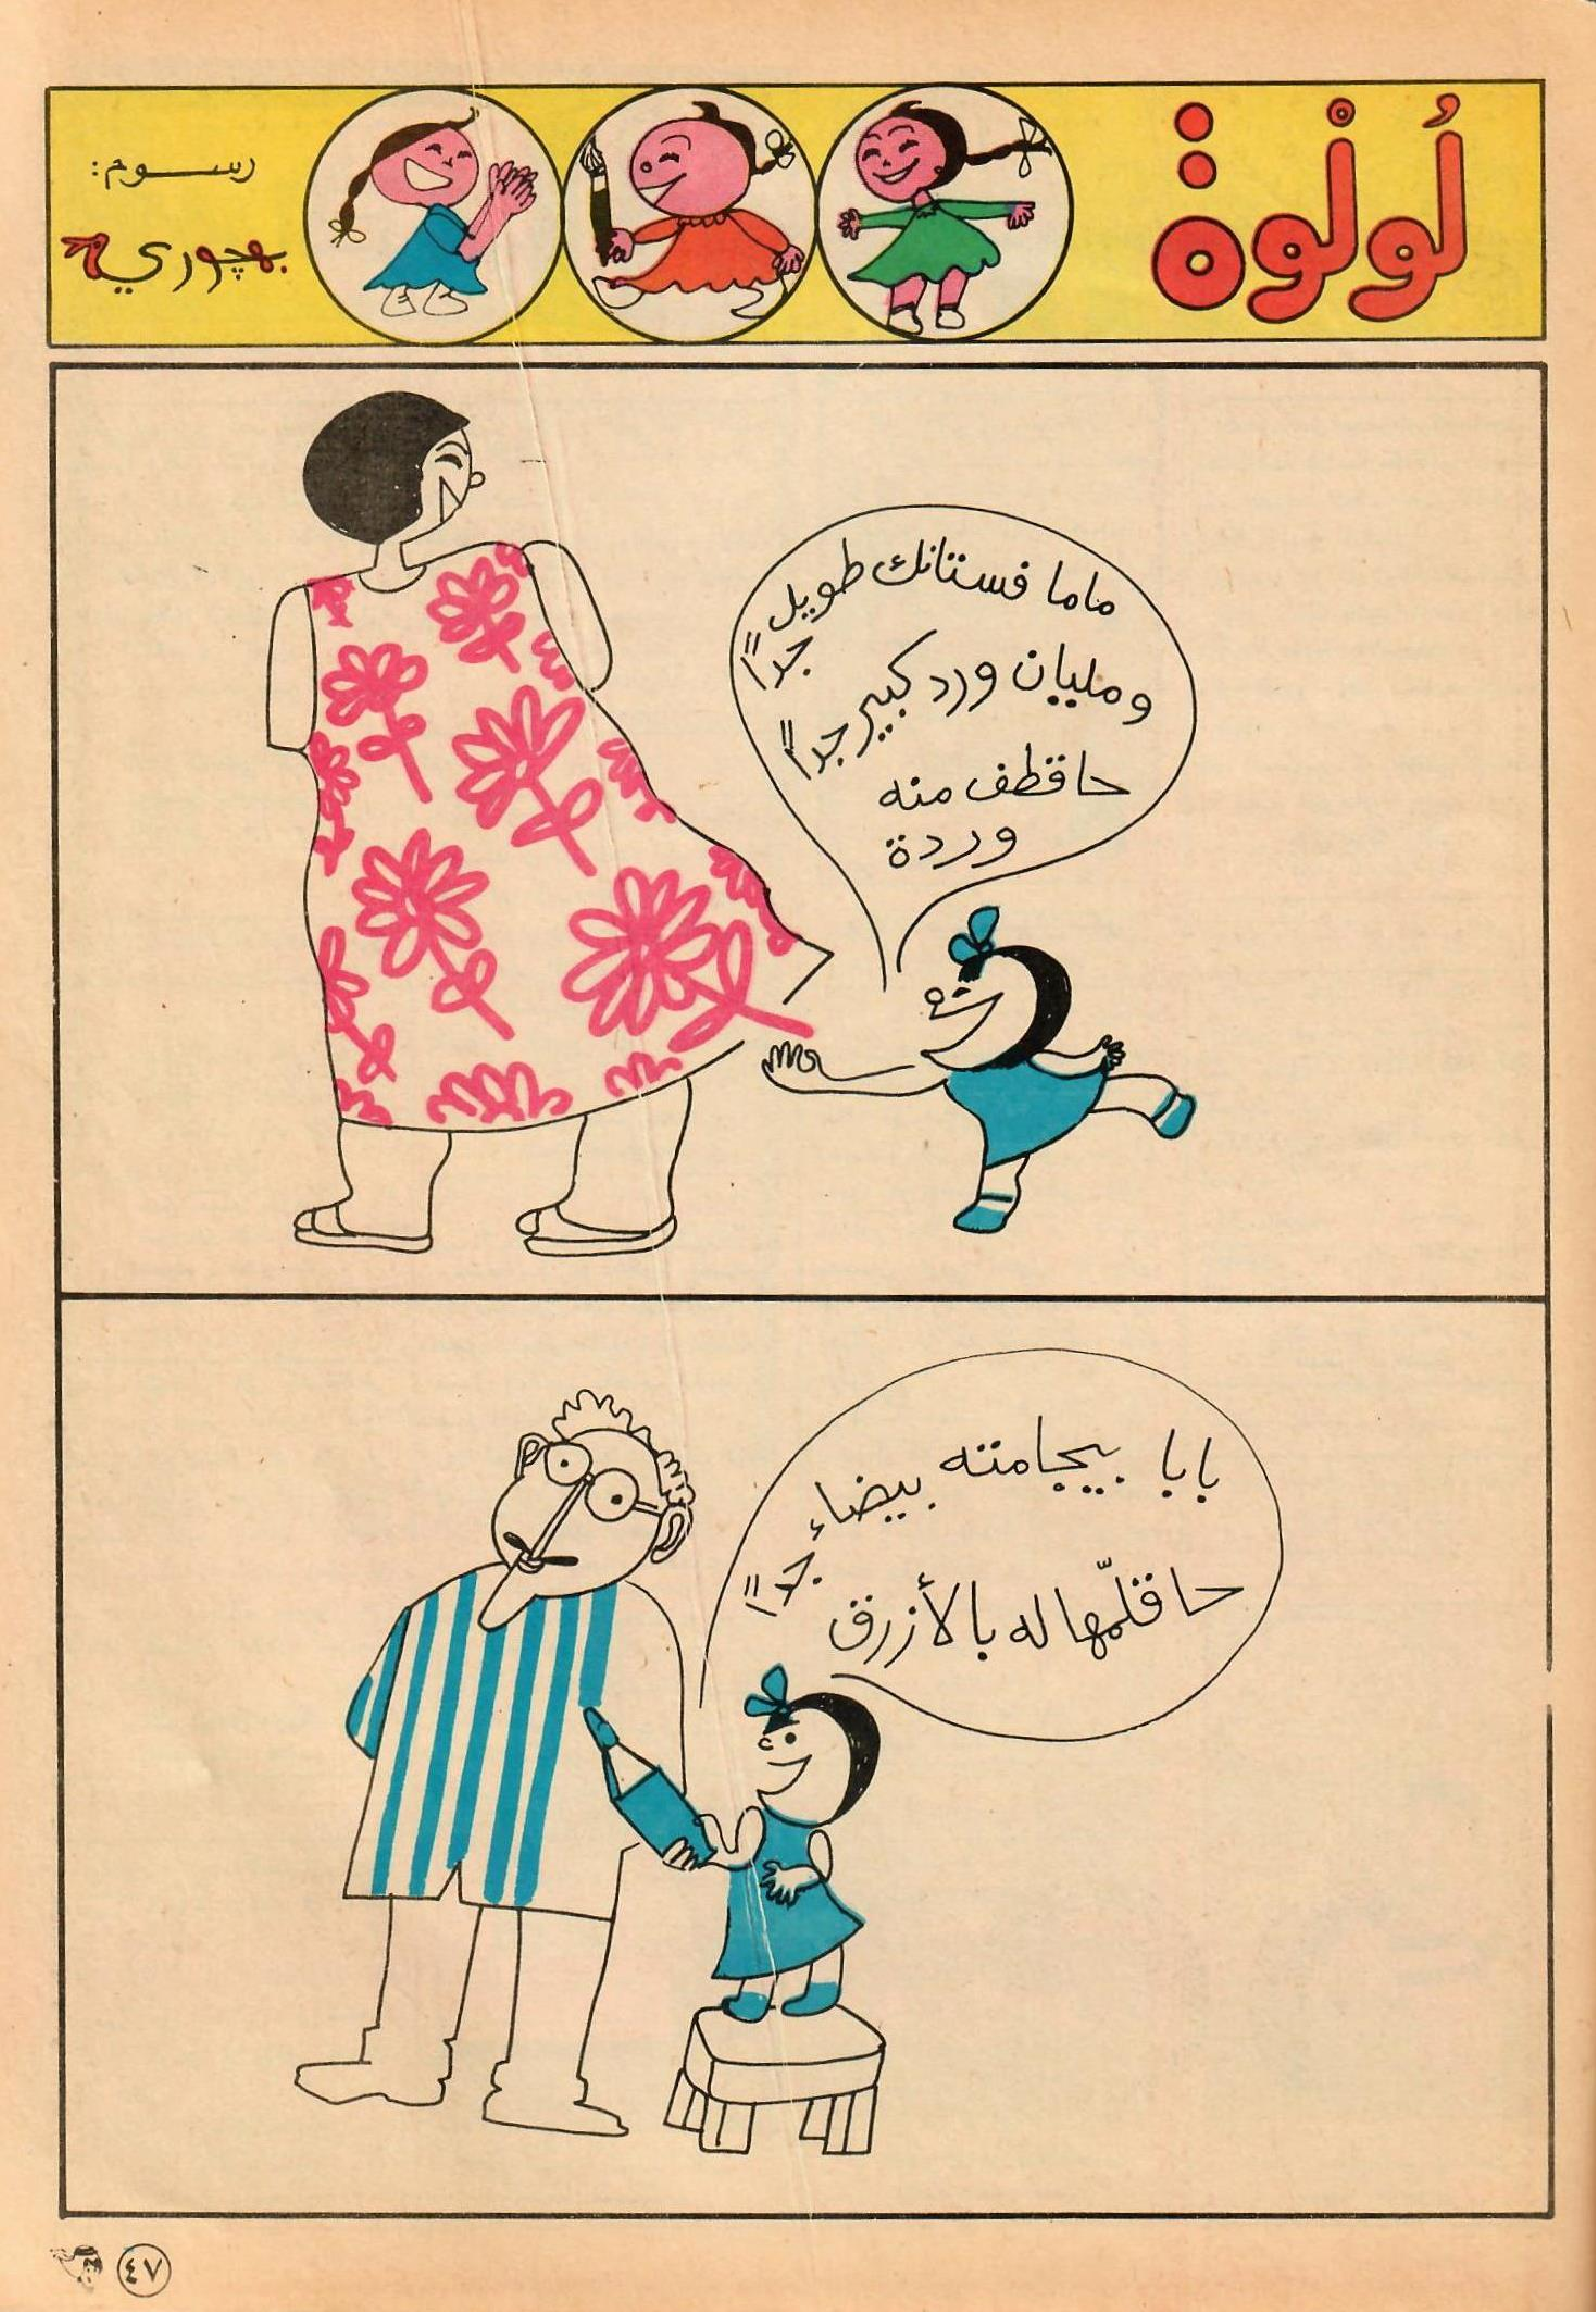 لُولْوة
رسوم:
بهچوري
ماما فستانك طويل
جداً
ومليان ورد كبير جداً
حاقطف منه
وردة
بابا بيجامته بيضاء
جداً
حاقلّمها له بالأزرق
٤٧